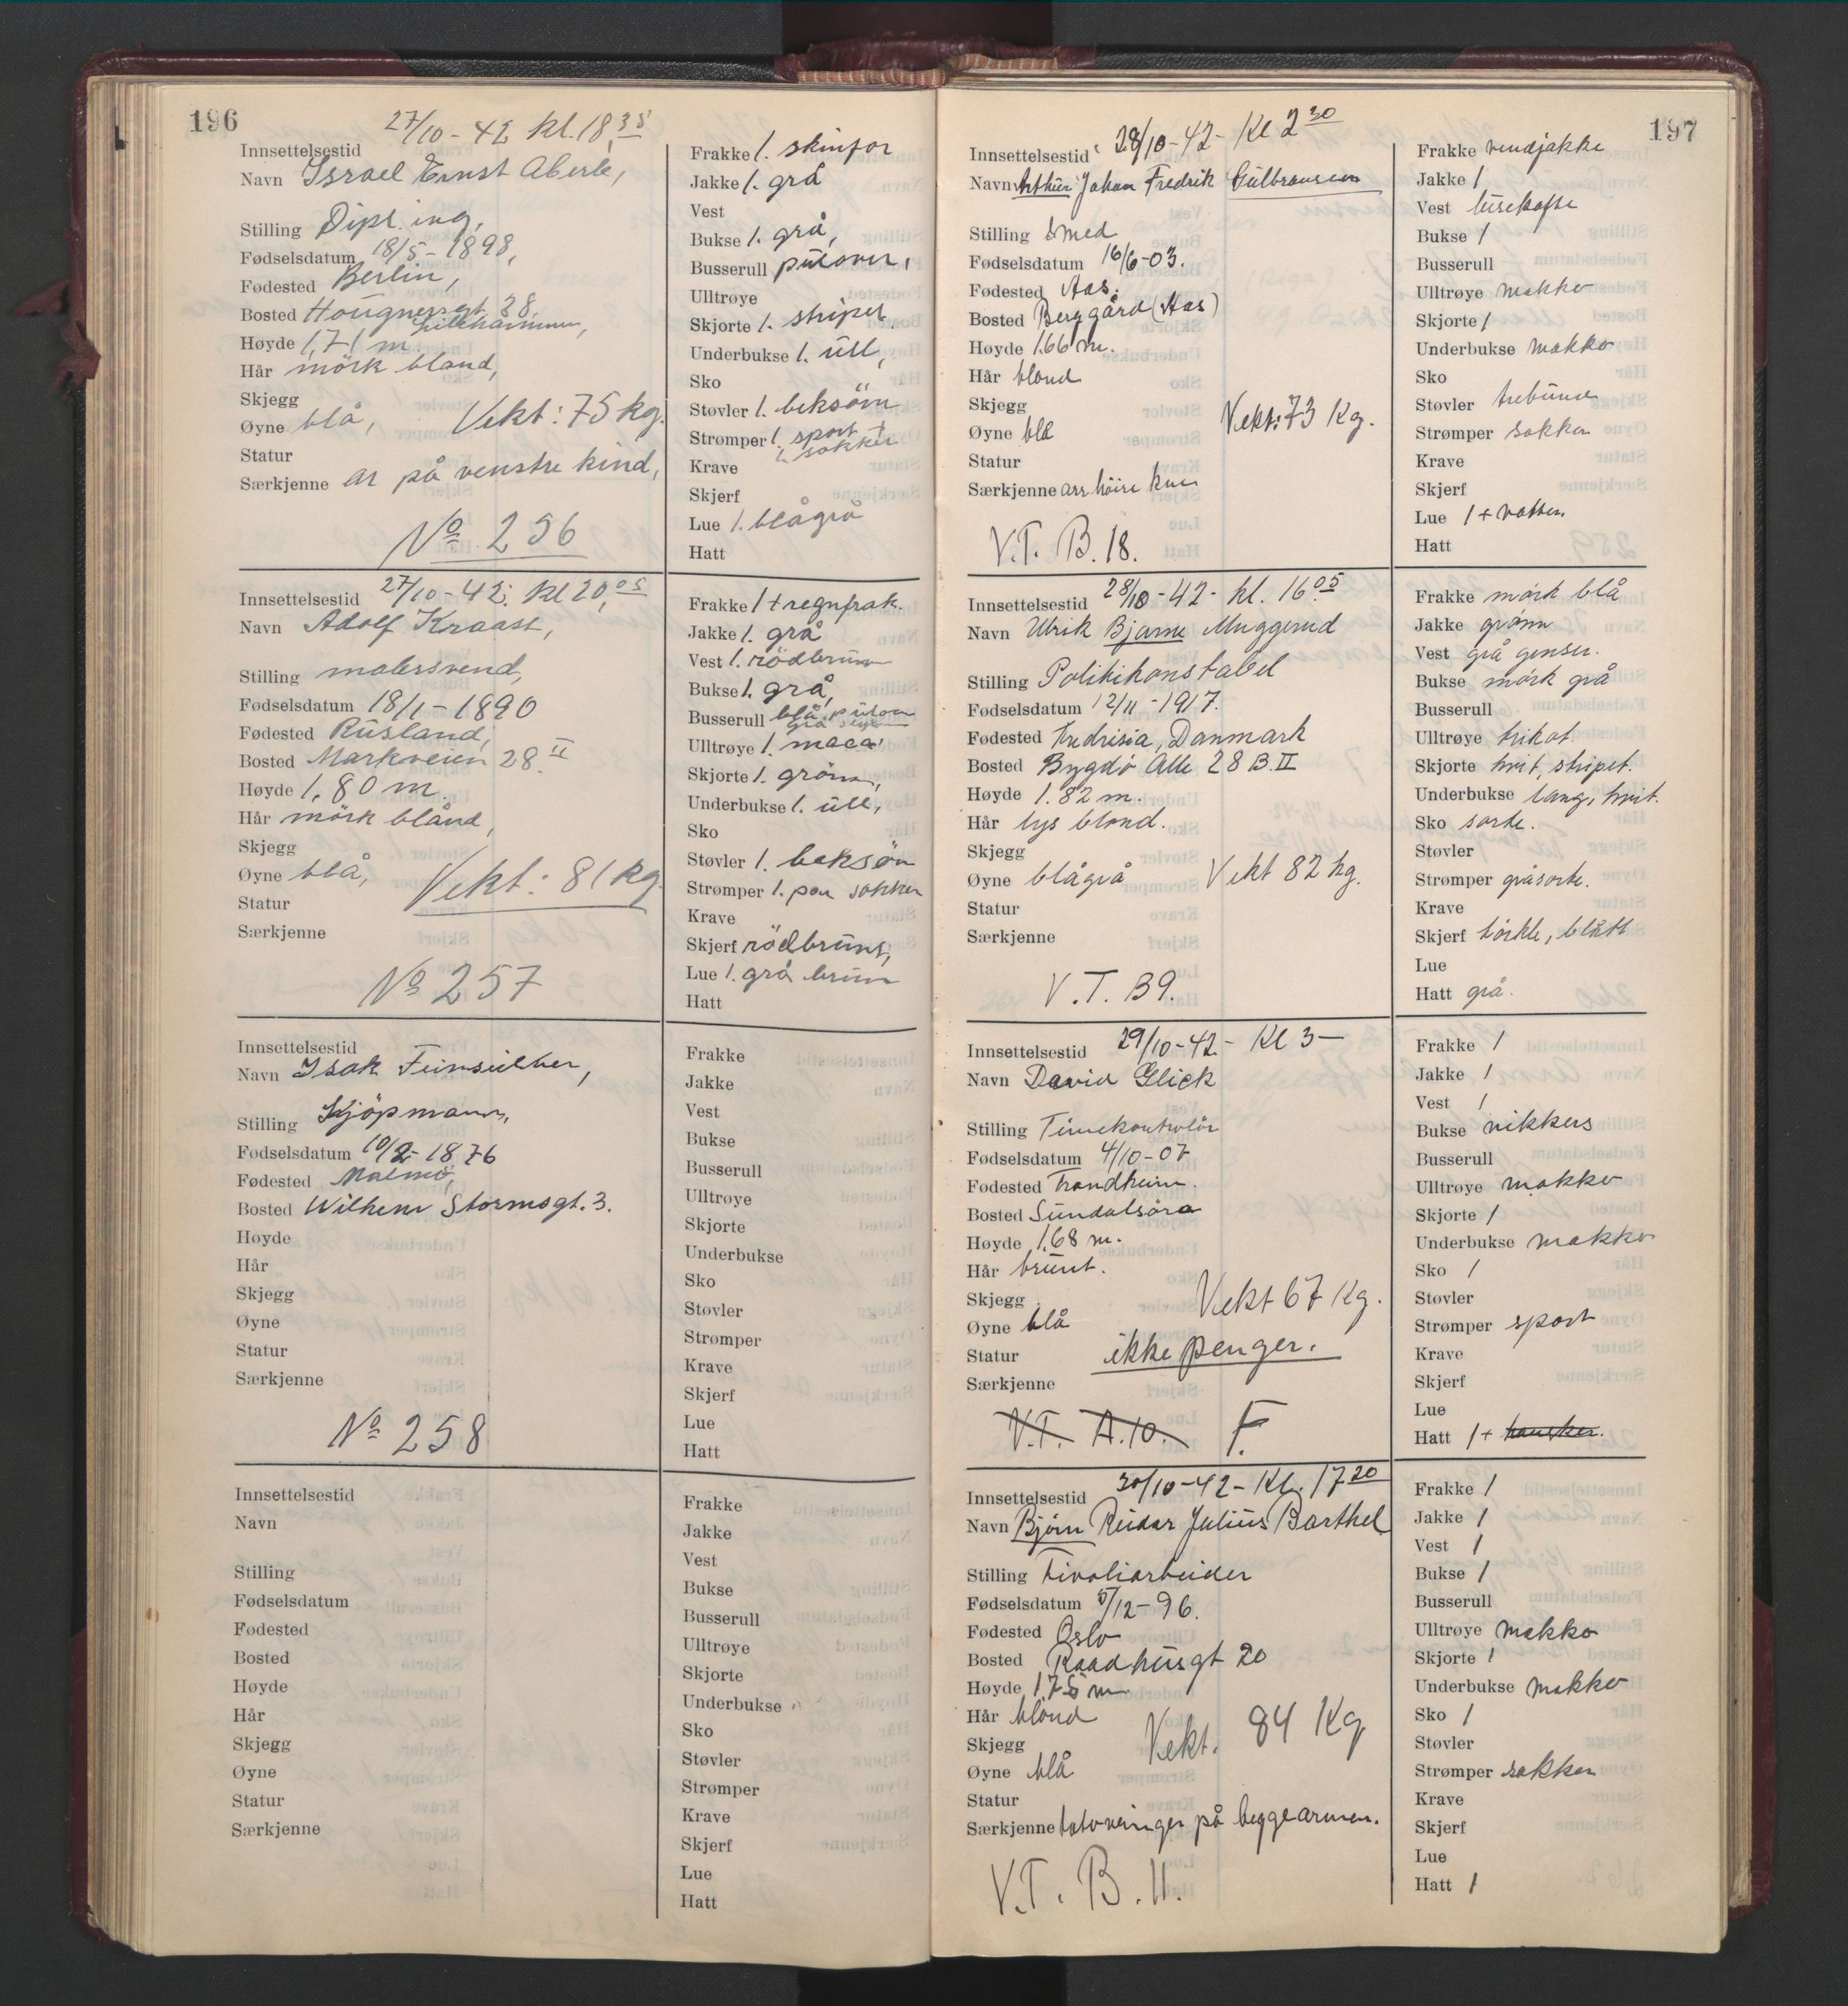 196
Innsettelsestid 27/10-42 kl. 18,35
Navn Israel Ernst Aberle,
Stilling Dipl. ing,
Fødselsdatum 18/5-1898,
Fødested Berlin,
Bosted Hougnersgt. 38,
Lillehammer,
Høyde 1,71 m.
Hår mörk bland,
Skjegg
Øyne blå, Vekt: 75 kg.
Statur
Særkjenne ar på venstre kind,
No 256
Frakke 1. skinfor
Jakke 1. grå
Vest
Bukse 1. grå,
Busserull pulover,
Ulltrøye
Skjorte 1. stripet
Underbukse 1. ull,
Sko
Støvler 1. beksöm
Strømper 1. sport +
1. sokker
Krave
Skjerf
Lue 1. blågrå
Hatt
Innsettelsestid 27/10-42. kl 20,05
Navn Adolf Kraast,
Stilling malersvend,
Fødselsdatum 18/1-1890
Fødested Rusland,
Bosted Markveien 28 II
Høyde 1,80 m.
Hår mörk bland,
Skjegg
Øyne blå, Vekt: 81 kg
Statur
Særkjenne
No 257
Frakke 1 + regnfrak.
Jakke 1. grå
Vest 1. rödbrun
Bukse 1. grå,
Busserull blå pulover
grå
Ulltrøye 1. maca
Skjorte 1. grönn,
Underbukse 1. ull,
Sko
Støvler 1. beksöm
Strømper 1. par sokker
Krave
Skjerf rödbruns,
Lue 1. grå brun
Hatt
Innsettelsestid
Navn Isak Feinsilber,
Stilling Kjöpmann,
Fødselsdatum 10/2-1876
Fødested Malmö,
Bosted Wilhem Stormsgt. 3.
Høyde
Hår
Skjegg
Øyne
Statur
Særkjenne
No 258
Frakke
Jakke
Vest
Bukse
Busserull
Ulltrøye
Skjorte
Underbukse
Sko
Støvler
Strømper
Krave
Skjerf
Lue
Hatt
Innsettelsestid
Navn
Stilling
Fødselsdatum
Fødested
Bosted
Høyde
Hår
Skjegg
Øyne
Statur
Særkjenne
Frakke
Jakke
Vest
Bukse
Busserull
Ulltrøye
Skjorte
Underbukse
Sko
Støvler
Strømper
Krave
Skjerf
Lue
Hatt
197
Innsettelsestid 28/10-42- Kl 2 30
Navn Arthur Johan Fredrik Gulbransen
Stilling Smed
Fødselsdatum 16/6-03.
Fødested Aas.
Bosted Berggård (Aas)
Høyde 1.66 m.
Hår blond
Skjegg
Øyne blå Vekt: 73 Kg.
Statur
Særkjenne arr höire kne
V.T. B. 18.
Frakke vendjakke
Jakke 1
Vest lusekofte
Bukse 1
Busserull
Ulltrøye makko
Skjorte 1
Underbukse makko
Sko
Støvler trebunn
Strømper sokker
Krave
Skjerf
Lue 1 + votter
Hatt
Innsettelsestid 28/10-42- kl. 16 05
Navn Ulrik Bjarne Muggerud
Stilling Politikonstabel
Fødselsdatum 12/11-1917.
Fødested Fredrisia, Danmark
Bosted Bygdö Alle 28 B. II
Høyde 1.82 m.
Hår lys blond.
Skjegg
Øyne blågrå Vekt 82 kg.
Statur
Særkjenne
V.T. B9.
Frakke mörk blå
Jakke grönn
Vest grå genser.
Bukse mörk grå
Busserull
Ulltrøye trikot.
Skjorte hvit, stripet.
Underbukse lang, hvit.
Sko sorte.
Støvler
Strømper gråsorte.
Krave
Skjerf törkle, blått
Lue
Hatt grå.
Innsettelsestid 29/10-42- Kl 3-
Navn David Glick
Stilling Timekontrolör
Fødselsdatum 4/10-07
Fødested Trondheim.
Bosted Sundalsöra
Høyde 1.68 m.
Hår brunt.
Skjegg
Øyne blå Vekt 67 Kg.
Statur ikke penger.
Særkjenne
V.T. A.10. F.
Frakke 1
Jakke 1
Vest 1
Bukse nikkers
Busserull
Ulltrøye makko
Skjorte 1
Underbukse makko
Sko 1
Støvler
Strømper sport
Krave
Skjerf
Lue
Hatt 1 + hansker.
Innsettelsestid 30/10-42- Kl. 17 20
Navn Bjørn Reidar Julius Barthel
Stilling Tivoliarbeider
Fødselsdatum 5/12-96.
Fødested Oslo
Bosted Raadhusgt 20
Høyde 1.75 m
Hår blond
Skjegg Vekt. 84 Kg
Øyne blå
Statur
Særkjenne tatoveringer på begge armer.
V.T. B. 11.
Frakke 1
Jakke 1
Vest 1
Bukse 1
Busserull
Ulltrøye makko
Skjorte 1
Underbukse makko
Sko 1
Støvler
Strømper sokker
Krave
Skjerf
Lue
Hatt 1